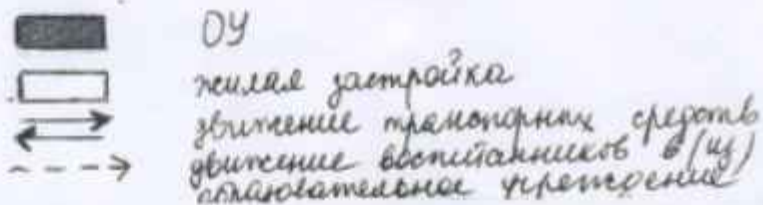 ОУ
жилая застройка
движение транспорных средств
движение воспитанников в (из)
образовательное учреждение